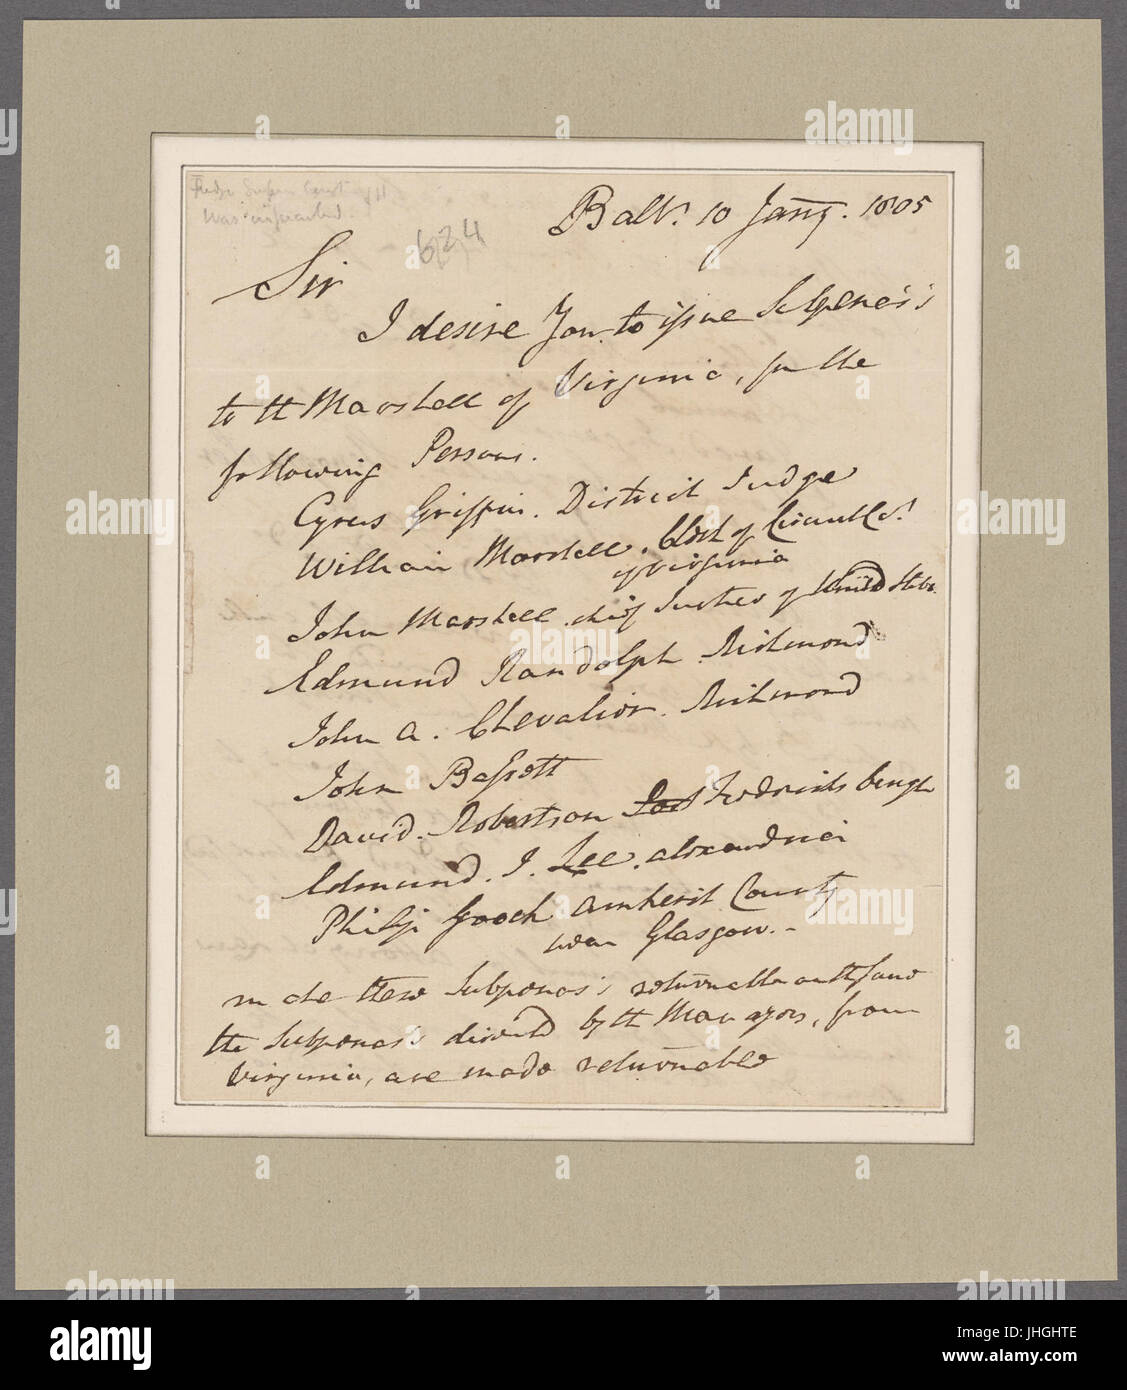 Judge Supm Court
was impeached.
624
Balt. 10 Jany. 1805
Sir
I desire You to issue Subpena's
to tt Marshall of Virginia, for the
following Persons.
Cyrus Griffin. District Judge
William Marshall. Clerk of Circuit Ct.
of Virginia
John Marshall. chief Justice of United States.
Edmund Randolph. Richmond
John A. Chevalier. Richmond
John Bassett
David. Robertson Fredericksburgh
Edmund. I. Lee. alexandria
Philip Gooch Amherst County
near Glasgow.
make these Subpoenas's returnable on the same
the Subpoenas's directed by tt Managers, from
Virginia, are made returnable
alamy
JHGHTE
www.alamy.com